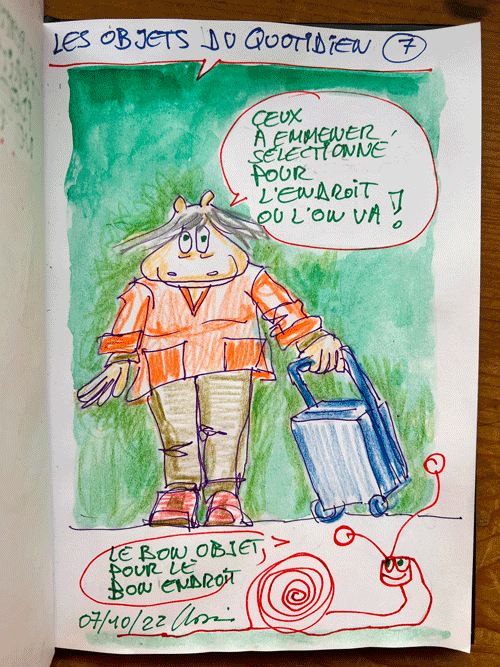 LES OBJETS DU QUOTIDIEN 7
CEUX
A EMMENER,
SELECTIONNE
POUR
L'ENDROIT
OU L'ON VA !
LE BON OBJET,
POUR LE
BON ENDROIT
07/10/22